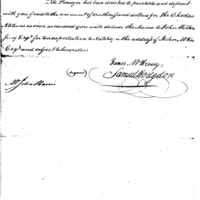 The Purveyor has been directed to purchase and deposit
with you Goods to the amount of one thousand dollars for the Choctaw
Nations as soon as received you will deliver the same to John Wilkins
Junr Esqr for transportation to Natchez to the address of John McKee
Esqr and subject to his order
James McHenry
(signed)
Samuel Hodgdon
Mr John Harris